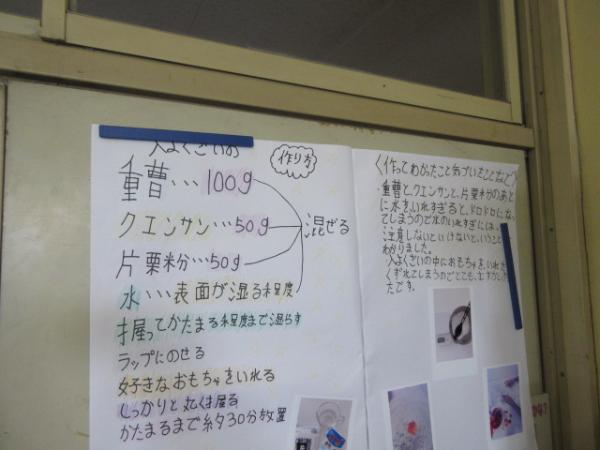 入よくざいの
作り方
重曹…100g
クエンサン…50g
片栗粉…50g
混ぜる
水…表面が湿る程度
握ってかたまる程度まで湿らす
ラップにのせる
好きなおもちゃをいれる
しっかりと丸く握る
かたまるまで約30分放置
〈作ってわかったこと気づいたことなど〉
・重曹と、クエンサンと、片栗粉のあと
に水をいれすぎると、ドロドロになっ
てしまうので水のいれすぎには、
注意しないといけないということが
わかりました。
入よくざいの中におもちゃをいれた
くずれてしまうのでとても、むずかしかっ
たです。